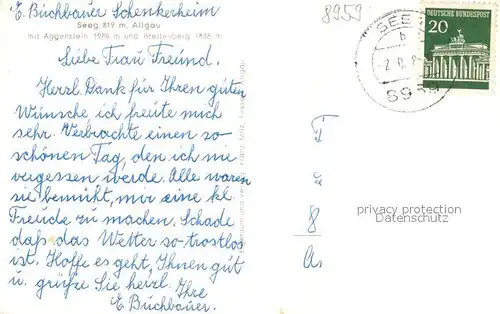 E. Buchbauer Schenkerheim
Seeg 819 m, Allgäu
mit Aggenstein 1986 m und Breitenberg 1838 m
8959
Liebe Frau Freund.
Herzl. Dank für Ihren guten
Wünsche ich freute mich
sehr. Verbrachte einen so
schönen Tag, den ich nie
vergessen werde. Alle waren
sie bemüht, mir eine kl.
Freude zu machen. Schade
daß das Wetter so trostlos
ist. Hoffe es geht, Ihnen gut
u. grüße Sie herzl. Ihre
E. Buchbauer.
SEEG
b
8959
DEUTSCHE BUNDESPOST
20
privacy protection
Datenschutz